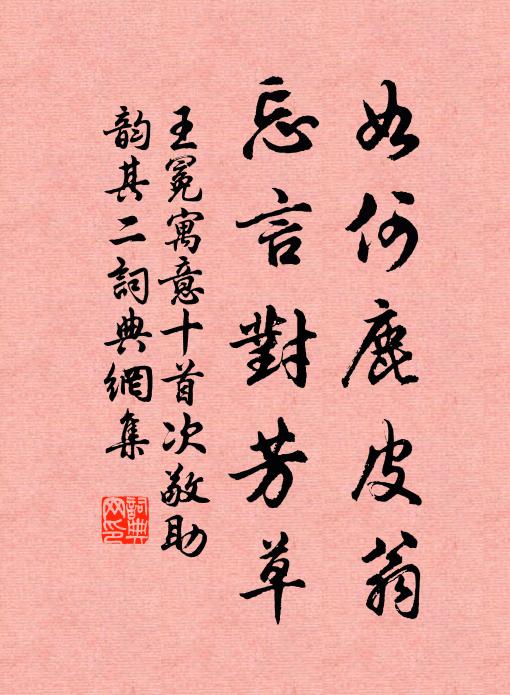 如何鹿皮翁
忘言對芳草
王冕寓意十首次敬助
韵其二詞典網集
詞典網印